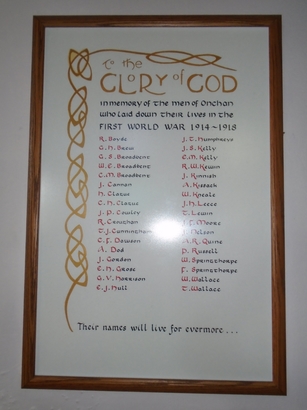 To the
GLORY of GOD
in memory of the men of Onchan
who laid down their lives in the
FIRST WORLD WAR 1914~1918
G. S. Broadbent
W. E. Broadbent
C. M. Broadbent
J. Cannan
H. Clague
C. H. Clague
J. P. Cowley
R. Craughan
T. J. Cunningham
C. F. Dawson
A. Dod
J. Gordon
E. H. Grose
G. V. Harrison
E. J. Hull
J. T. Humphreys
J. S. Kelly
E. M. Kelly
R. W. Kewin
J. Kinnish
A. Kissack
W. Kneale
J. H. Leece
T. Lewin
Moore
Nelson
Quine
P. Russell
W. Springthorpe
F. Springthorpe
W. Wallace
T. Wallace
Their names will live for evermore...